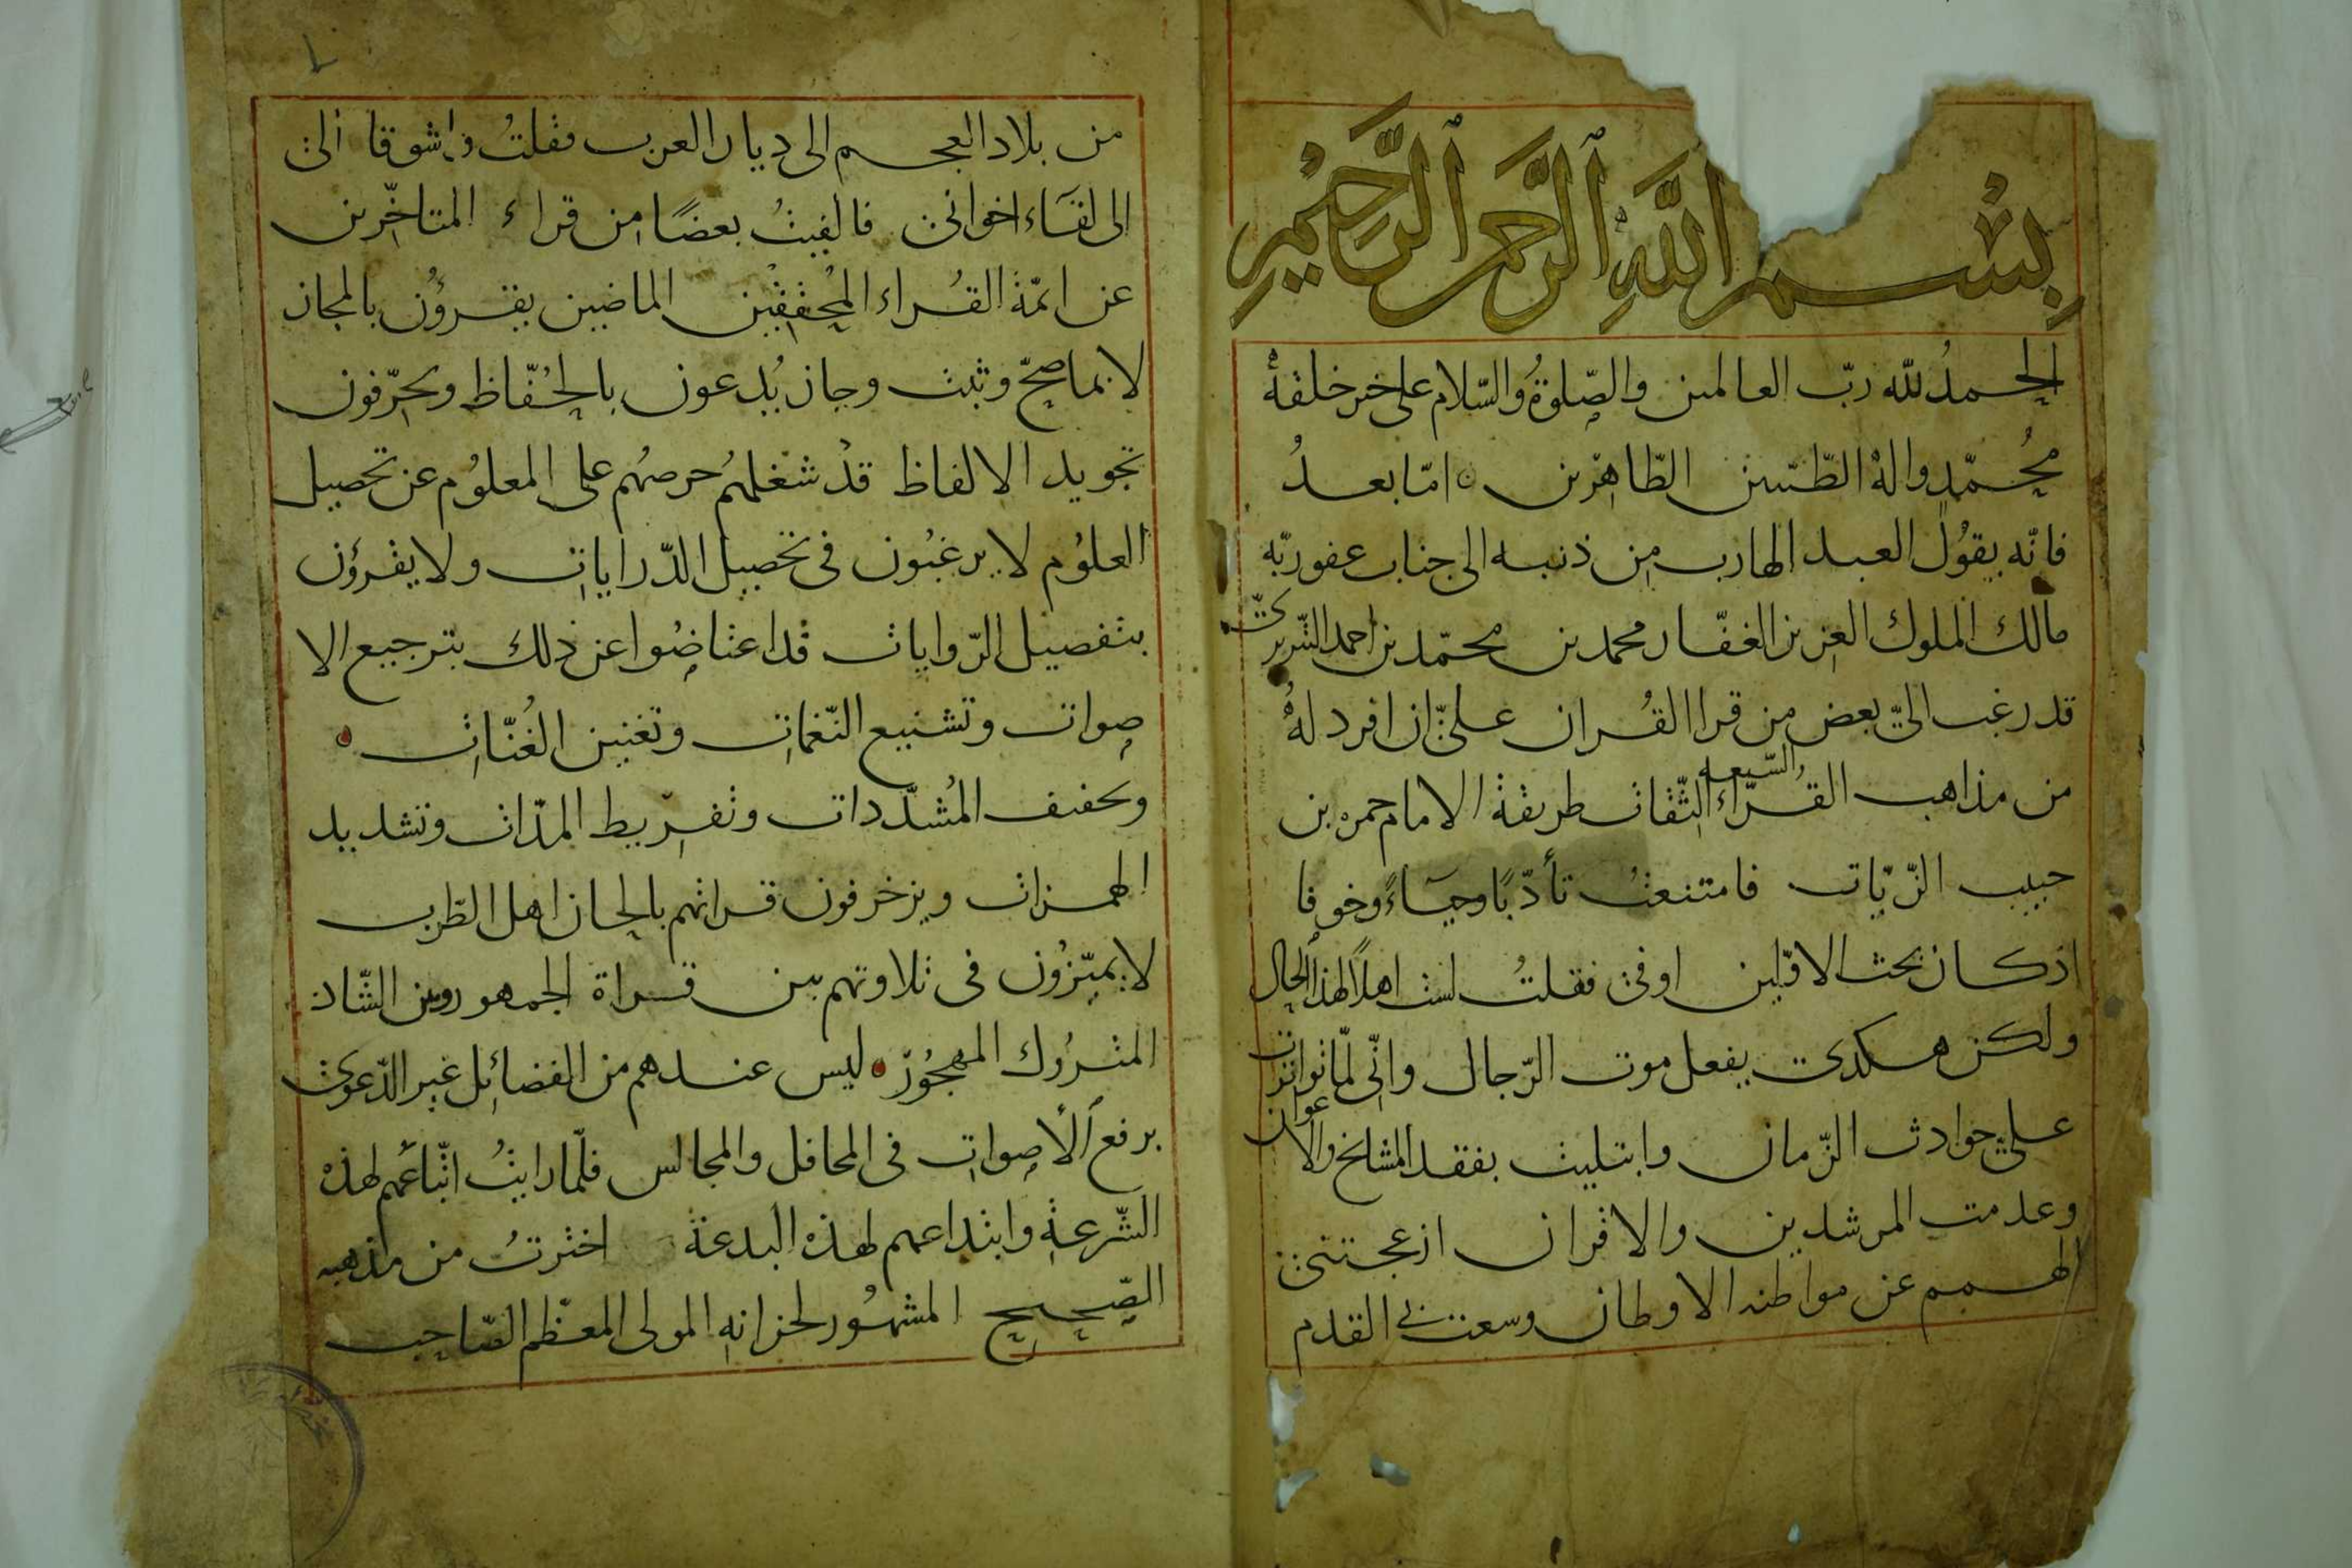 بسم الله الرحمن الرحيم
الحمد لله ربّ العالمين والصّلوة والسّلام على خير خلقه
محمّد واله الطّيّبين الطّاهرين امّا بعد
فانّه يقول العبد الهارب من ذنبه الى جناب عفو ربّه
مالك الملوك العزيز الغفّار محمد بن محمّد بن احمد التّبريزىّ
قد رغب الىّ بعض من قرا القران علىّ ان افرد له
من مذاهب القرّاء السّبعه الثّقات طريقة الامام حمزه بن
حبيب الزّيّات فامتنعت تأدّبًا وحيَاءً وخوفا
اذ كان بحث الاوّلين اوفى فقلتُ لست اهلاً لهذا الحال
ولكن هكذى يفعل موت الرّجال وانّى لمّا تواترت
علىّ حوادث الزّمان وابتليت بفقد المشايخ والاعوان
وعدمت المرشدين والاقران ازعجتنى
الهمم عن مواطنه الاوطان وسعت بى القدم
من بلاد العجم الى ديار العرب فقلتُ واشوقا الى
الى لقَاء اخوانى فالفيتُ بعضًا من قراء المتاخّرين
عن ائمّة القُراء المُحققين الماضين يقرؤن بالمجاز
لا بما صحّ وثبت وجاز يُدعون بالحُفّاظ ويحرّفون
تجويد الالفاظ قدْ شغلهُم حرصهُم على المعلوُم عن تحصيل
العلوُم لا يرغبُون فى تحصيل الدّرايات ولا يقرؤن
بتفصيل الرّوايات قد اعتاضُوا عن ذلك بترجيع الا
صوات وتشنيع النّغمات وتغنين الغُنّات
وتخفيف المُشدّدات وتفريط المدّات وتشديد
الهمزات ويزخرفون قراتهم بالحان اهل الطّرب
لا يميّزُون فى تلاوتهم بين قراة الجمهور وبين الشّاذ
المترُوك المهجُور ليس عندهم من الفضائل غير الدّعوى
برفع الأصوات فى المحافل والمجالس فلّما رايتُ اتّباعُهم لهذه
الشّرعة وابتداعهم لهذه البدعة اخترتُ من مذهبه
الصّحيح المشهُور لخزانه المولى المعظّم الصّاحب